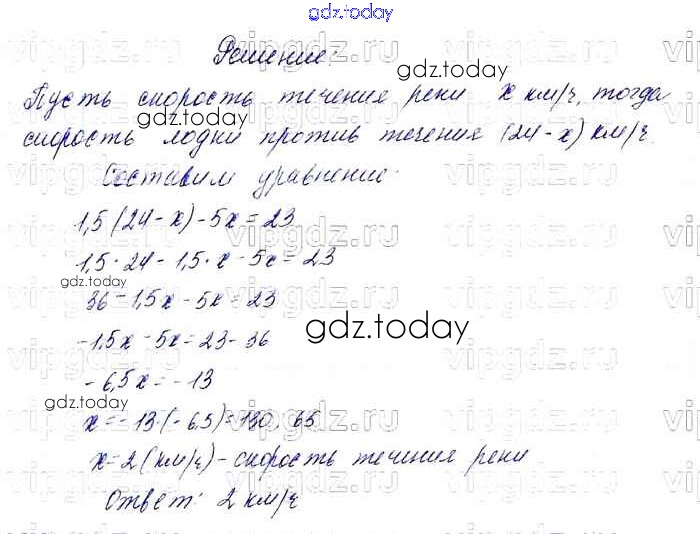 gdz.today
Решение:
gdz.today
Пусть скорость течения реки x км/ч, тогда
gdz.today
скорость лодки против течения (24-x) км/ч.
Составим уравнение:
1,5(24-x)-5x=23
1,5·24-1,5·x-5x=23
gdz.today
36-1,5x-5x=23
gdz.today
-1,5x-5x=23-36
-6,5x=-13
gdz.today
x=-13:(-6,5)=130:65
x=2(км/ч)-скорость течения реки
Ответ: 2 км/ч
vipgdz.ru